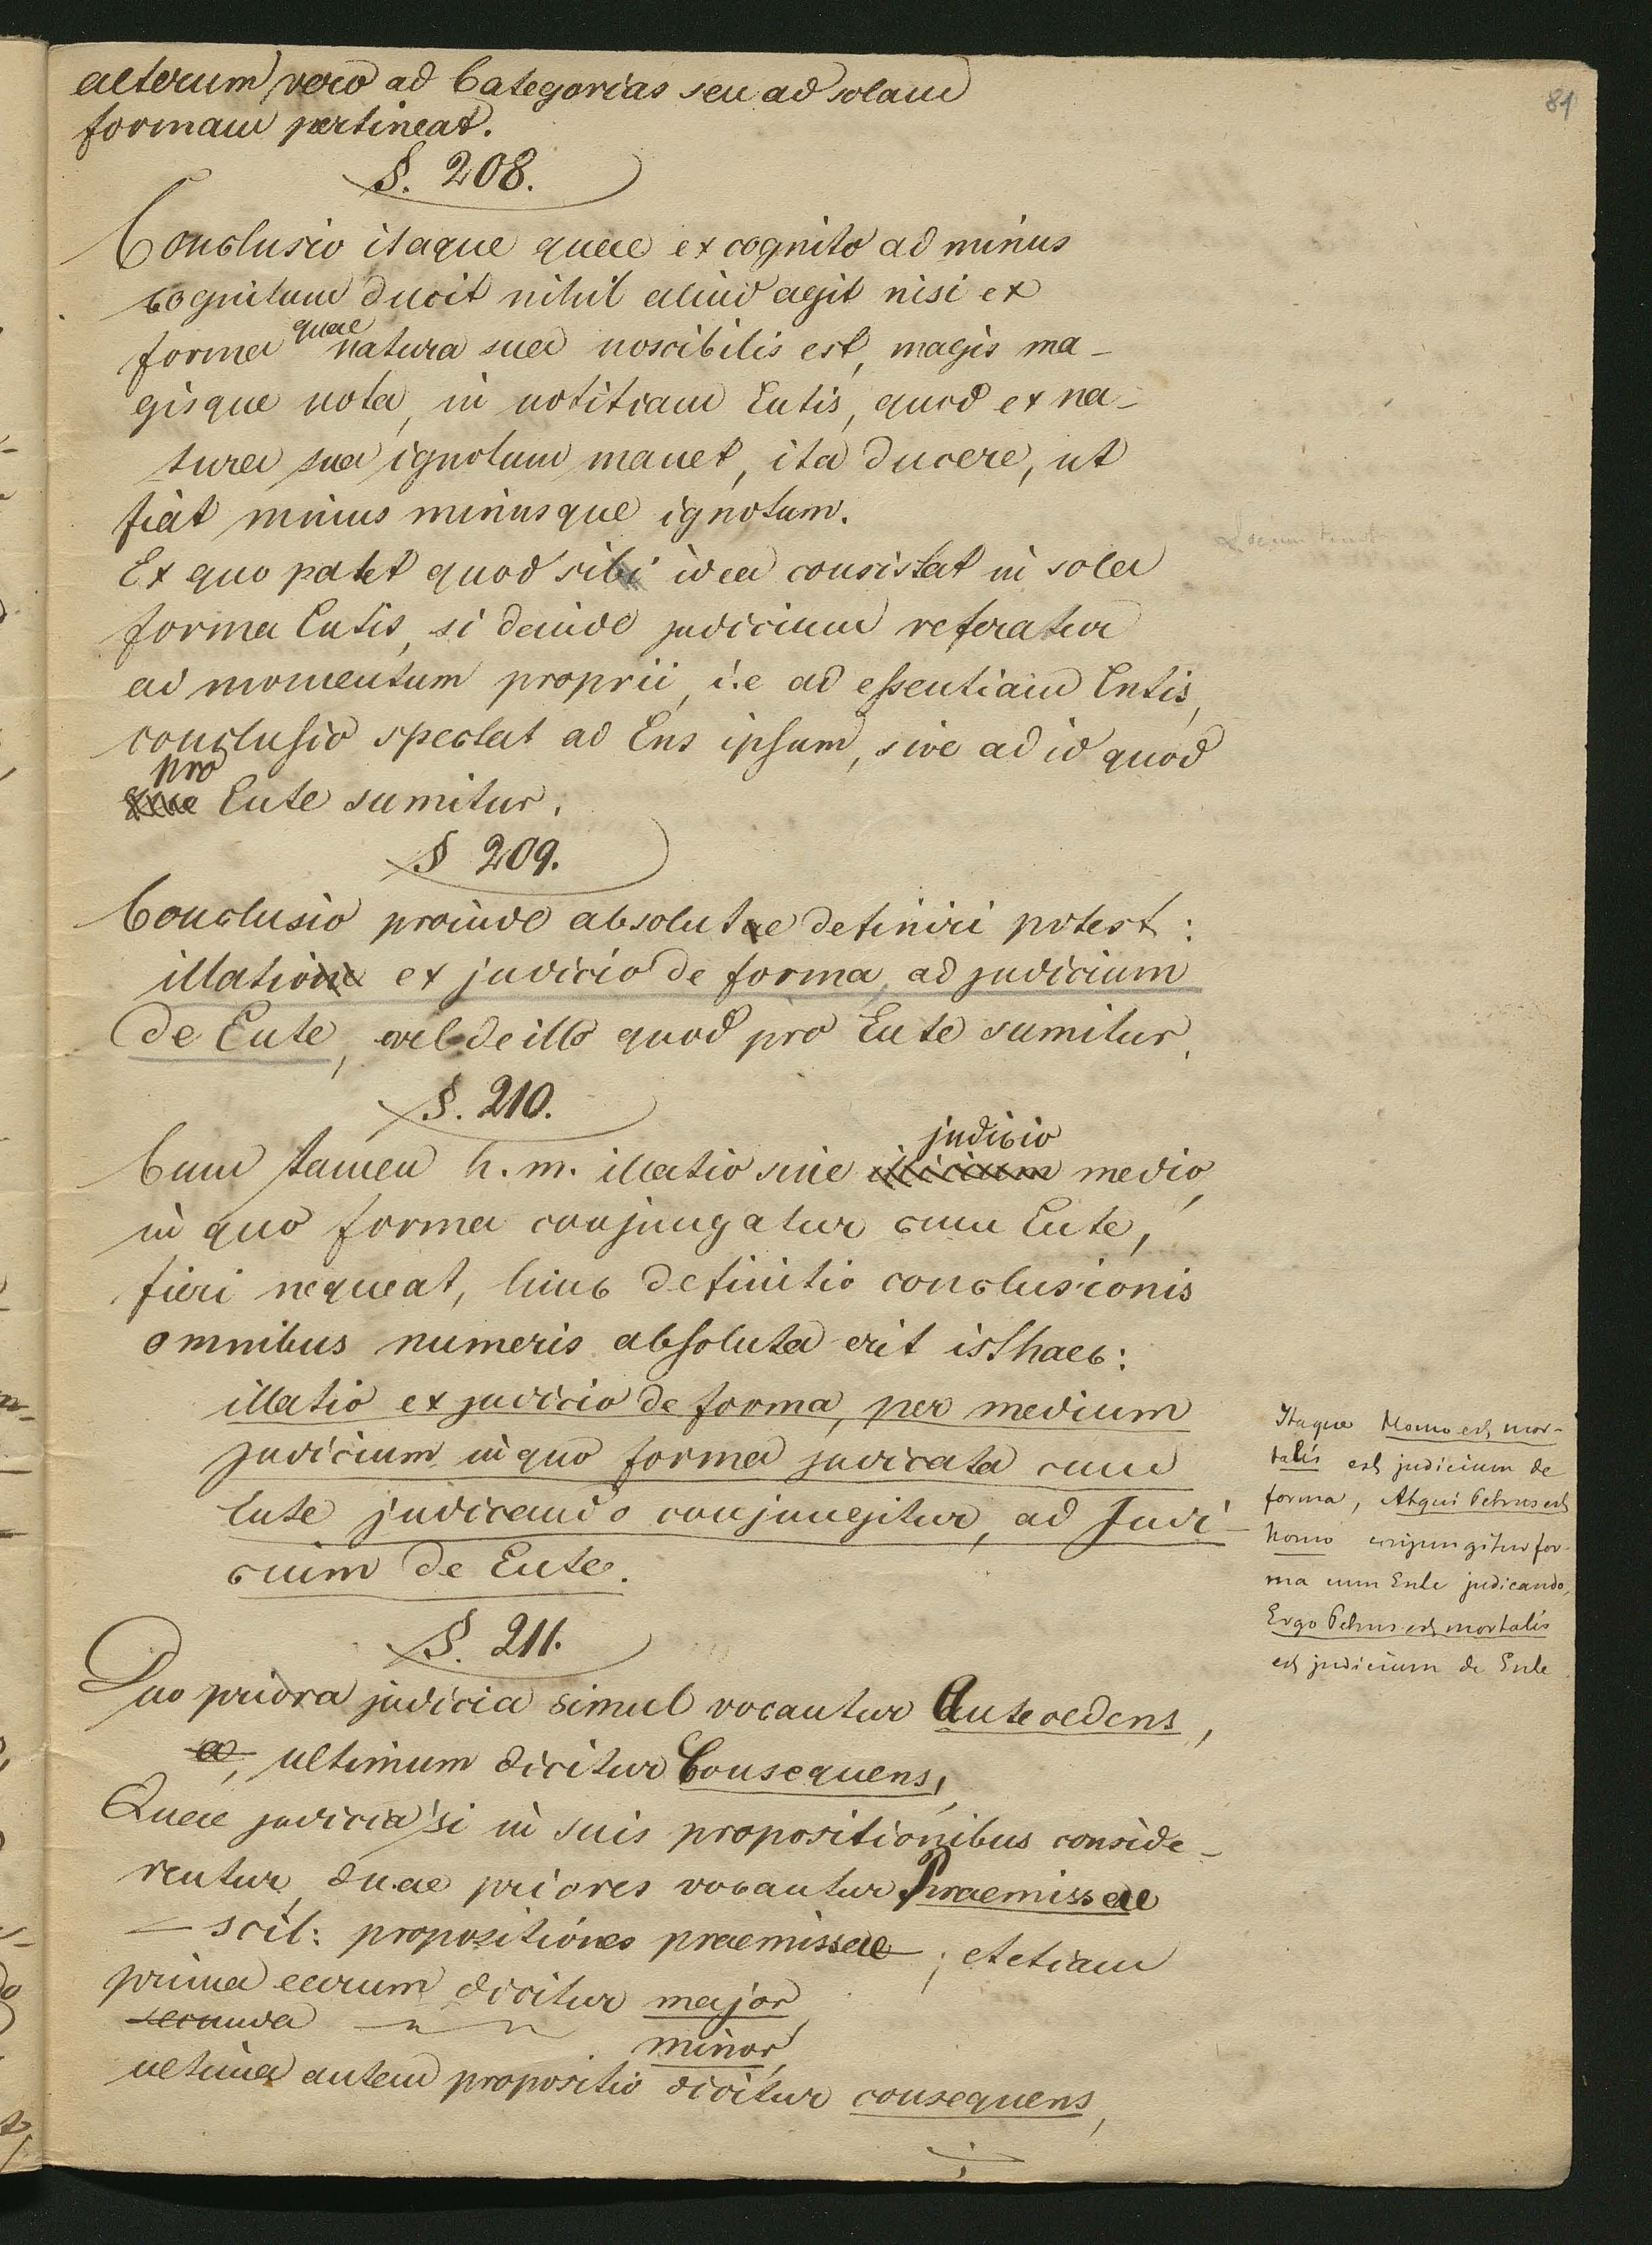 81
alterum vero ad Categorias seu ad solam
formam pertineat.
§. 208.
Conclusio itaque quae ex cognito ad minus
cognitum ducit nihil aliud agit nisi ex
forma quae natura sua noscibilis est, magis ma-
gisque nota, in notitiam Entis, quod ex na-
tura sua ignotum manet, ita ducere, ut
fiat minus minusque ignotum.
Ex quo patet quod sibi idea consistat in sola
forma Entis, si deinde judicium referatur
ad momentum proprii, i.e ad essentiam Entis,
conclusio spectat ad Ens ipsum, sive ad id quod
pro Ente sumitur.
§ 209.
Conclusio proinde absolute definiri potest:
illatio ex judicio de forma, ad judicium
de Ente, vel de illo quod pro Ente sumitur.
§. 210.
Cum tamen h. m. illatio sine judicio medio,
in quo forma conjungatur cum Ente,
fieri nequeat, hinc definitio conclusionis
omnibus numeris absoluta erit isthaec:
illatio ex judicio de forma, per medium
judicium in quo forma judicata cum
Ente judicando conjungitur, ad Judi-
cium de Ente.
Itaque Homo est mor-
talis est judicium de
forma, Atqui Petrus est
homo conjungitur for-
ma cum Ente judicando,
Ergo Petrus est mortalis
est judicium de Ente
§. 211.
Duo priora judicia simul vocantur Antecedens,
ultimum dicitur Consequens,
Quae judicia si in suis propositionibus conside-
rentur, duae priores vocantur Praemissae
– scil: propositiones praemissae – ; et etiam
prima earum dicitur major,
secunda minor,
ultima autem propositio dicitur consequens,